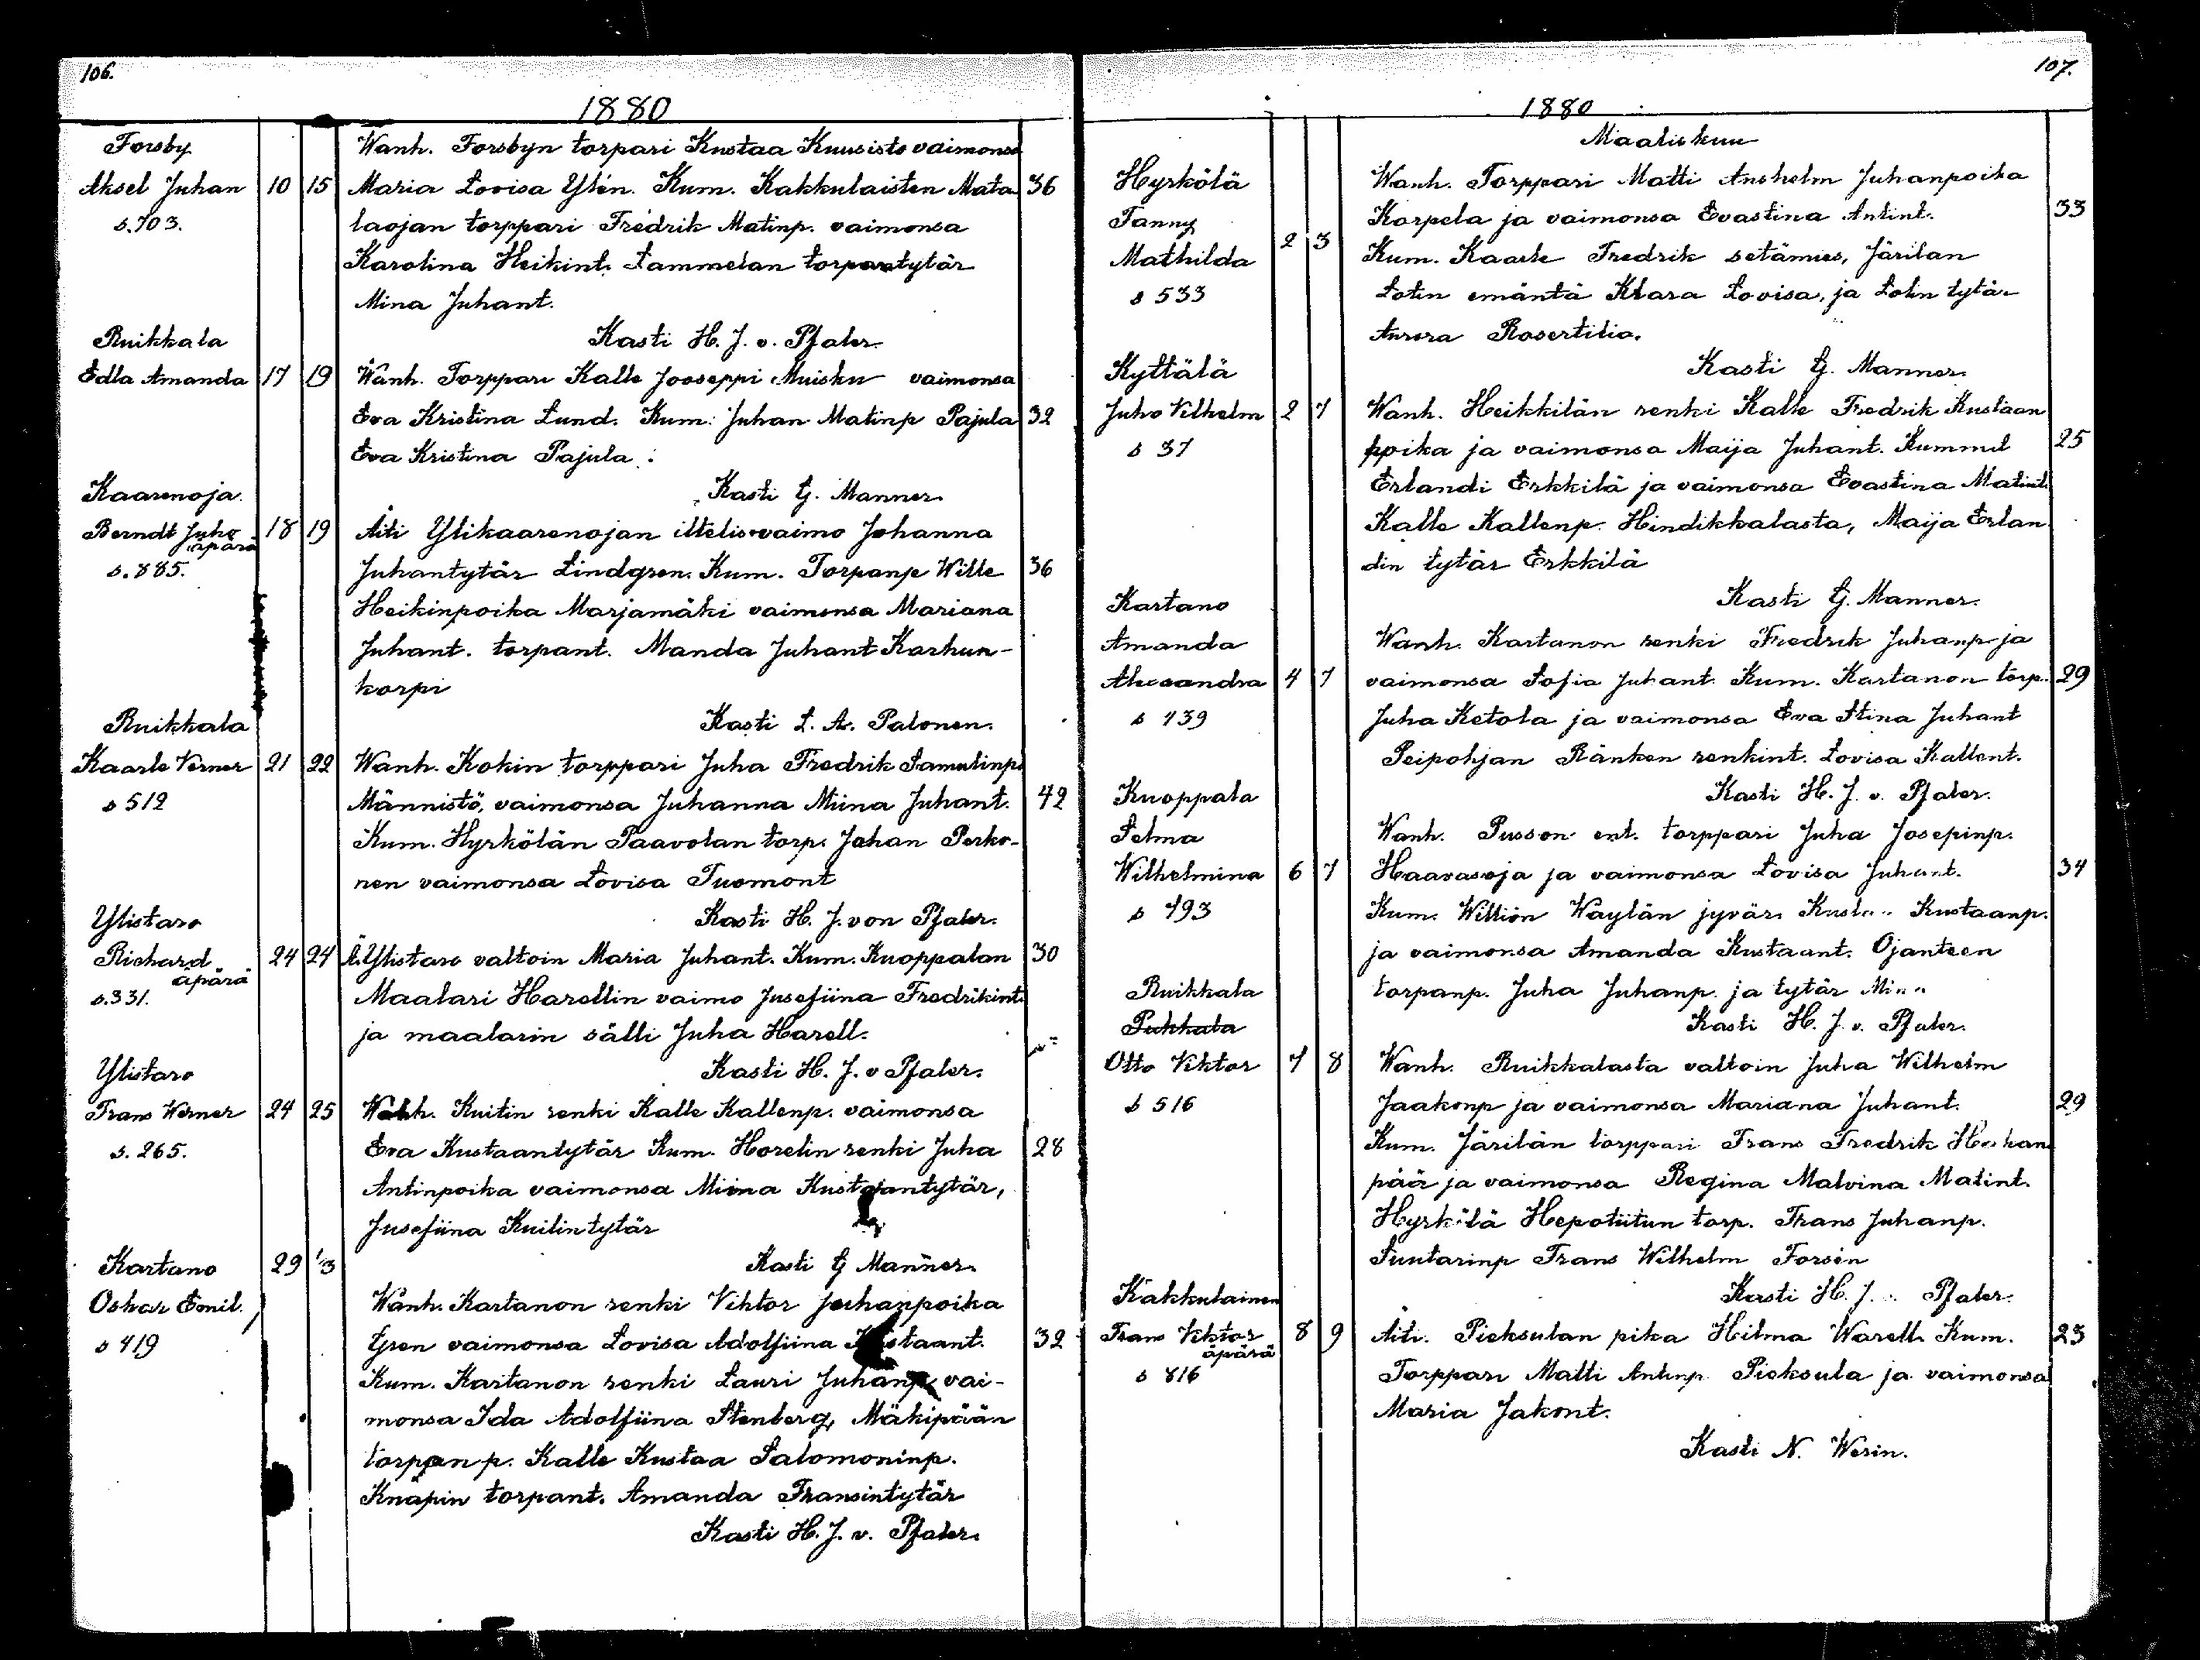 106.
1880
Forsby
Wanh. Forsbyn torpari Kustaa Kuusisto vaimonsa
Aksel Juhan 10 15 Maria Lovisa Ylén. Kum. Kakkulaisten Mata 36
s. 703. laojan torppari Fredrik Matinp. vaimonsa
Karolina Heikint. Sammelan torparitytär
Mina Juhant.
Ruikkala Kasti H. J. v. Pfaler.
Edla Amanda 17 19 Wanh. Torppari Kalle Jooseppi Muisku vaimonsa
Eva Kristina Lund. Kum. Juhan Matinp Pajula 32
Eva Kristina Pajula.
Kaarenoja. Kasti G. Manner.
Berndt Juho 18 19 Äiti Ylikaarenojan ittelisvaimo Johanna
äpärä
s. 885. Juhantytär Lindgren. Kum. Torpanp Wille 36
Heikinpoika Marjamäki vaimonsa Mariana
Juhant. torpant. Manda Juhant Karhun-
korpi
Ruikkala Kasti L. A. Palonen.
Kaarle Verner 21 22 Wanh. Kokin torppari Juha Fredrik Samulinp.
s 512 Männistö, vaimonsa Juhanna Miina Juhant. 42
Kum. Hyrkölän Paavolan torp. Johan Perko-
nen vaimonsa Lovisa Tuomont
Ylistaro Kasti H. J. von Pfaler.
Richard 24 24 Ä. Ylistaro valtoin Maria Juhant. Kum. Kuoppalan 30
äpärä
s. 331. Maalari Harellin vaimo Jusefiina Fredrikint.
ja maalarin sälli Juha Harell.
Ylistaro Kasti H. J. v Pfaler.
Frans Werner 24 25 Wanh. Kuitin renki Kalle Kallenp. vaimonsa
s. 265. Eva Kustaantytär Kum. Horelin renki Juha 28
Antinpoika vaimonsa Miina Kustaantytär,
Jusefiina Kuitintytär
Kartano 29 1/3 Kasti G Manner.
Oskar Emil. Wanh. Kartanon renki Vihtor Juhanpoika
s 419 Gren vaimonsa Lovisa Adolfiina Kustaant. 32
Kum. Kartanon renki Lauri Juhanp vai-
monsa Ida Adolfiina Stenberg, Mäkipään
torppanp. Kalle Kustaa Salomoninp.
Knäpin torpant. Amanda Fransintytär
Kasti H. J. v. Pfaler.
107.
1880
Maaliskuu
Hyrkölä Wanh. Torppari Matti Anshelm Juhanpoika
Fanny Korpela ja vaimonsa Evastina Antint. 33
Mathilda 2 3 Kum. Kaarle Fredrik setämies, Järilan
s 533 Lotin emäntä Klara Lovisa, ja Lotin tytär
Aurora Rosertilia.
Kyttälä Kasti G. Manner.
Juho Vilhelm 2 7 Wanh. Heikkilän renki Kalle Fredrik Kustaan
s 37 ppoika ja vaimonsa Maija Juhant. Kummit 25
Erlandi Erkkilä ja vaimonsa Evastina Matint.
Kalle Kallenp. Hindikkalasta, Maija Erlan
din tytär Erkkilä
Kartano Kasti G. Manner.
Amanda Wanh. Kartanon renki Fredrik Juhanp ja
Alecsandra 4 7 vaimonsa Sofia Juhant. Kum. Kartanon torp. 29
s 439 Juha Ketola ja vaimonsa Eva Stina Juhant
Peipohjan Ränken renkint. Lovisa Kallent.
Kuoppala Kasti H. J. v. Pfaler.
Selma Wanh. Pusson ent. torppari Juha Josepinp.
Wilhelmina 6 7 Haavasoja ja vaimonsa Lovisa Juhant. 34
s 493 Kum. Willión Waylän jyväri Kustaanp.
ja vaimonsa Amanda Kustaant. Ojanteen
Ruikkala torpanp. Juha Juhanp. ja tytär
Pukkala Kasti H. J. v. Pfaler.
Otto Viktor 7 8 Wanh. Ruikkalasta valtoin Juha Wilhelm
s 516 Jaakonp ja vaimonsa Mariana Juhant. 29
Kum. Järilän torppari Frans Fredrik
pää ja vaimonsa Regina Malvina Matint.
Hyrkölä Hepotiitun torp. Frans Juhanp.
Suutarinp Frans Wilhelm Forsén
Kakkulainen Kasti H. J. Pfaler.
Frans Viktor 8 9 Äiti. Pieksulan pika Hilma Warell. Kum. 23
äpärä
s 816 Torppari Matti Antinp. Pieksula ja vaimonsa
Maria Jakont.
Kasti N. Werin.